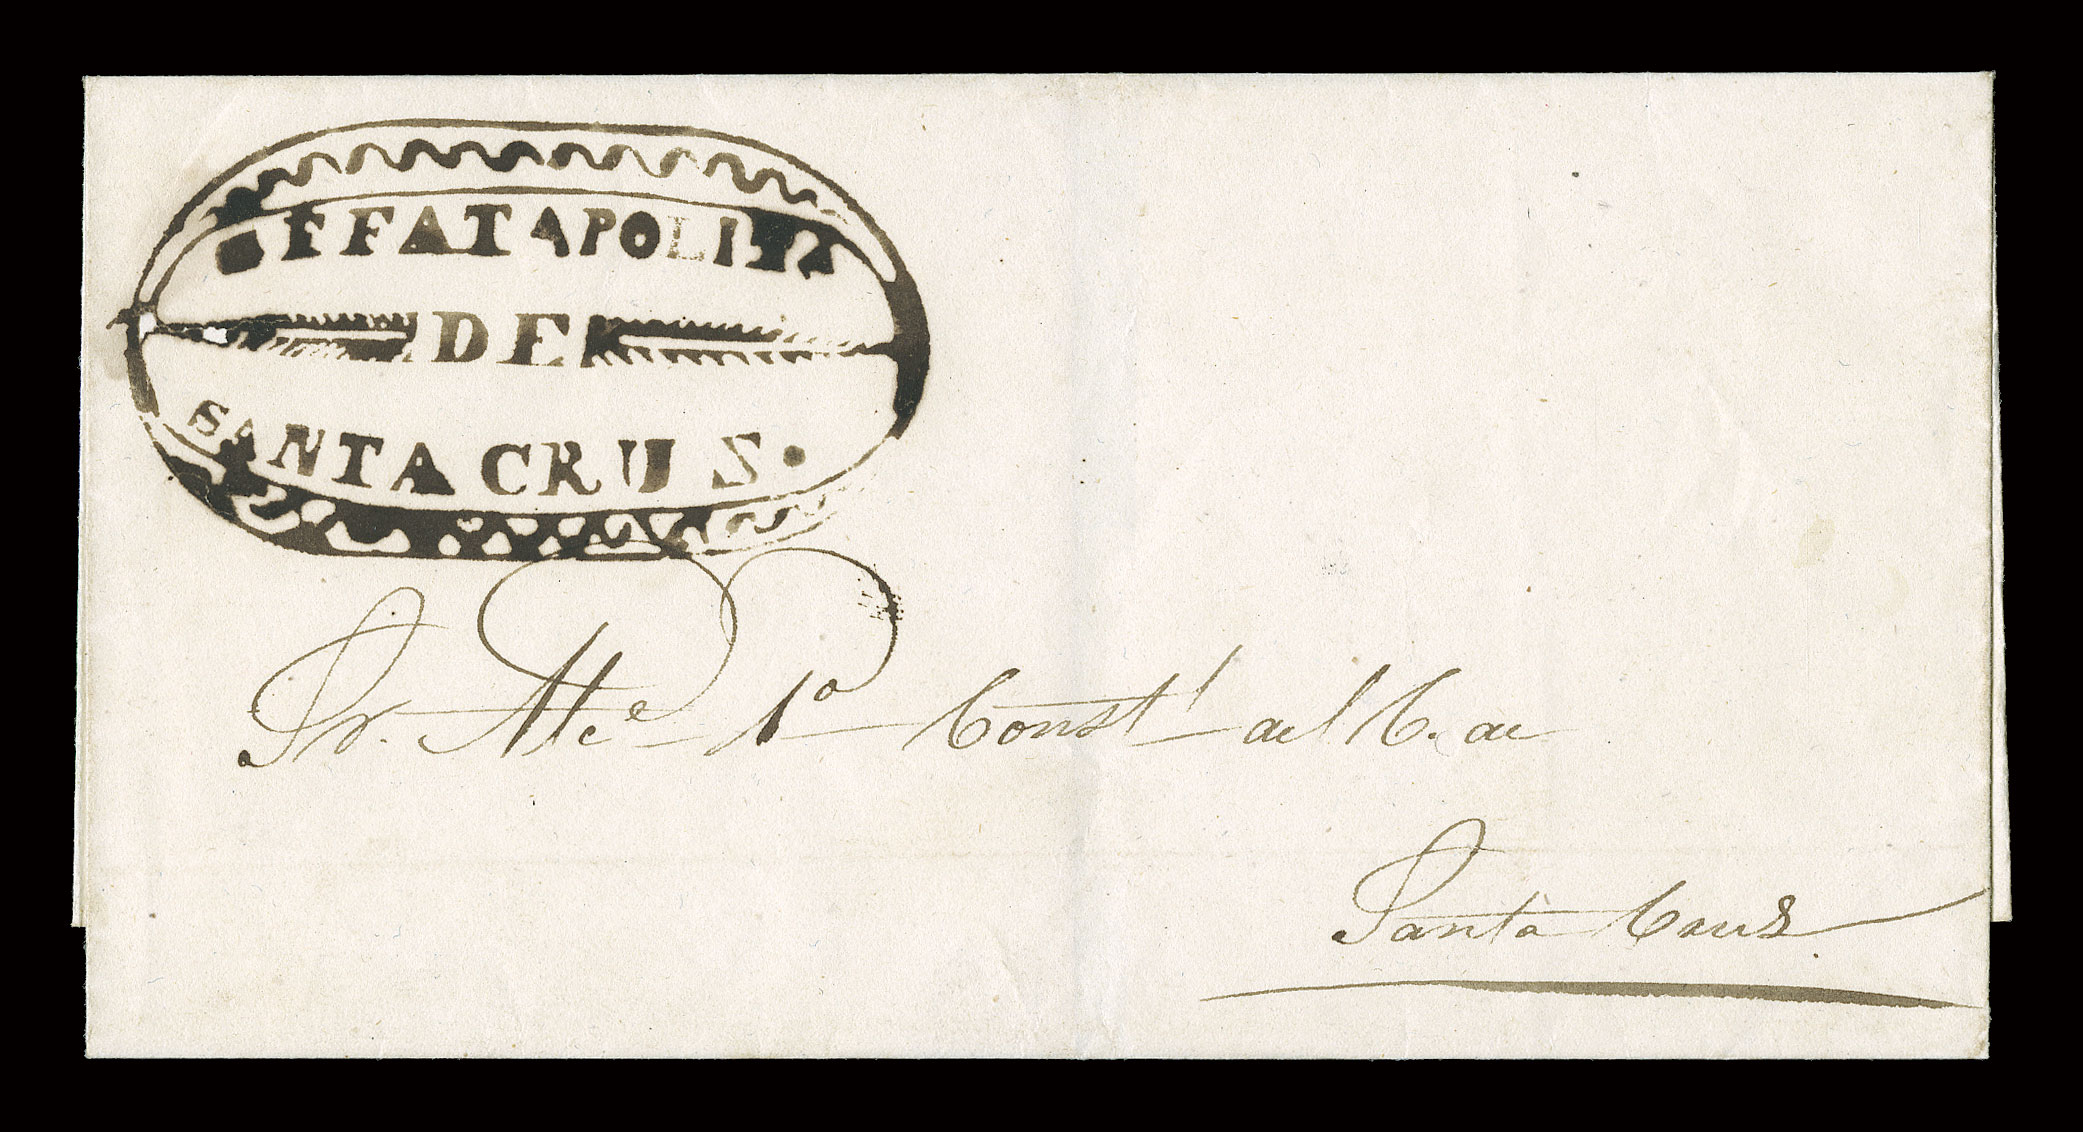 FFATAPOLIT
DE
SANTA CRUS.
Sr. Alce. 1º Constl. del C. de
Santa Cruz